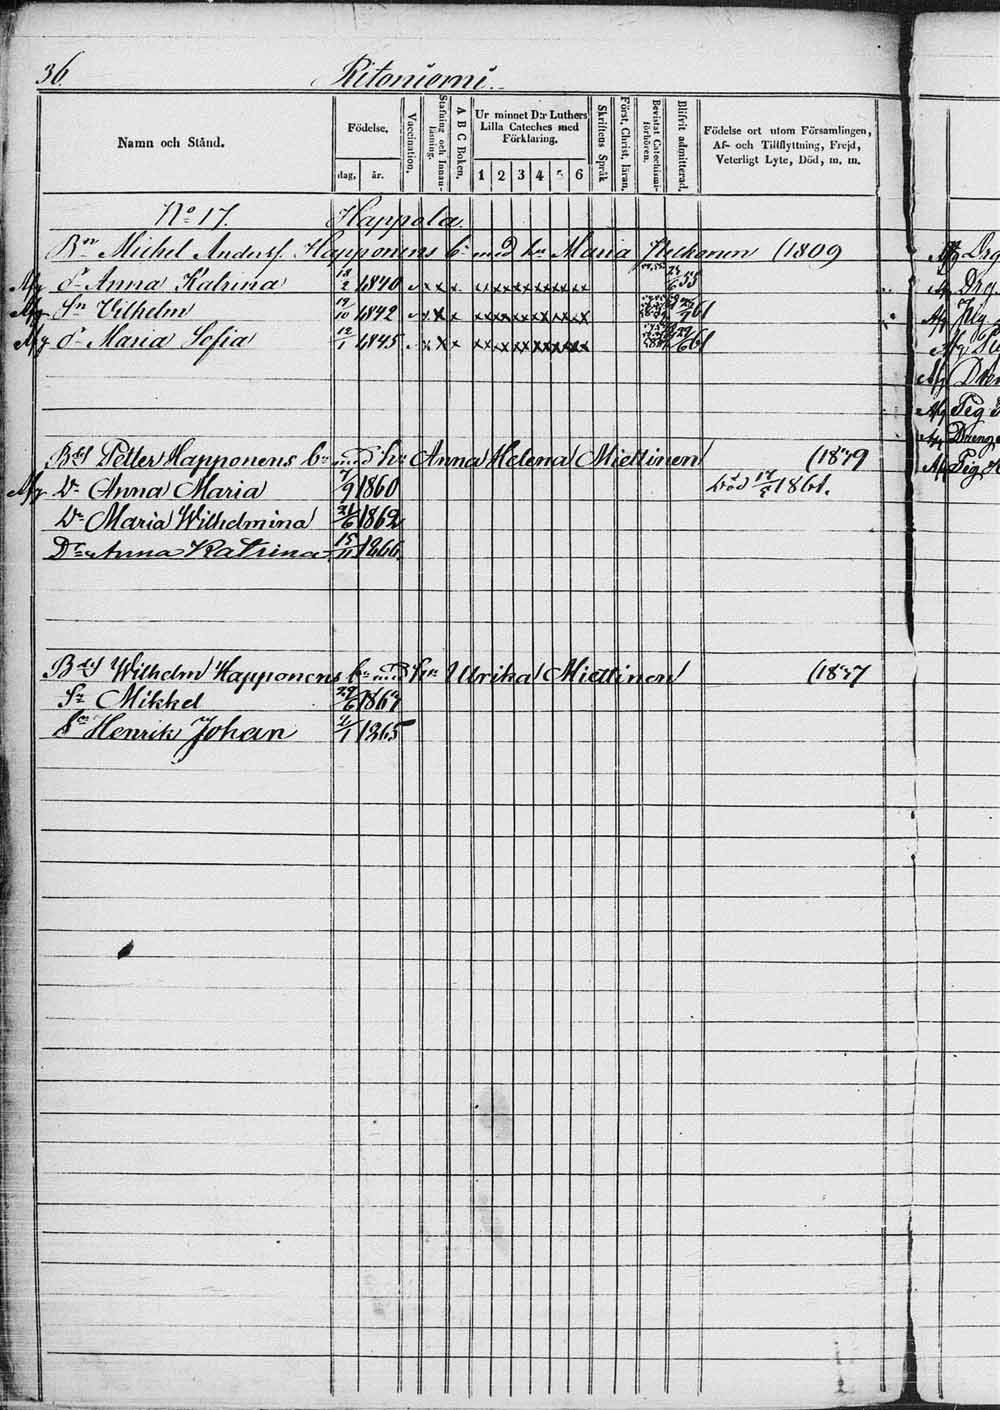 36.
Ritoniemi.
Namn och Stånd.
Födelse,
dag, år.
Vaccination.
Stafning och Innanläsning.
A B C Boken.
Ur minnet D:r Luthers Lilla Cateches med Förklaring.
1 2 3 4 5 6
Skriftens Språk
Först. Christ. läran.
Bevistat Catechismiförhören.
Blifvit admitterad.
Födelse ort utom Församlingen,
Af- och Tillflyttning, Frejd,
Veterligt Lyte, Död, m. m.
No 17. Happola.
Bn Michel Andersf. Happonens bn med hu Maria (1809
Afg Dr Anna Katrina 18/2 1840 55
Afg Sn Vilhelm 19/10 1842 61
Afg Dr Maria Sofia 12/1 1845 61
Petter Happonens bn med hu Anna Helena Miettinen (1839
Afg Dr Anna Maria 7/9 1860 Död 17/8 1861.
Dr Maria Wilhelmina 21/6 1862
Dr Anna Katrina 15/11 1866
Wilhelm Happonens bn med hu Ulrika Miettinen (1837
Sn Mikkel 29/6 1867
Sn Henrik Johan 4/1 1865